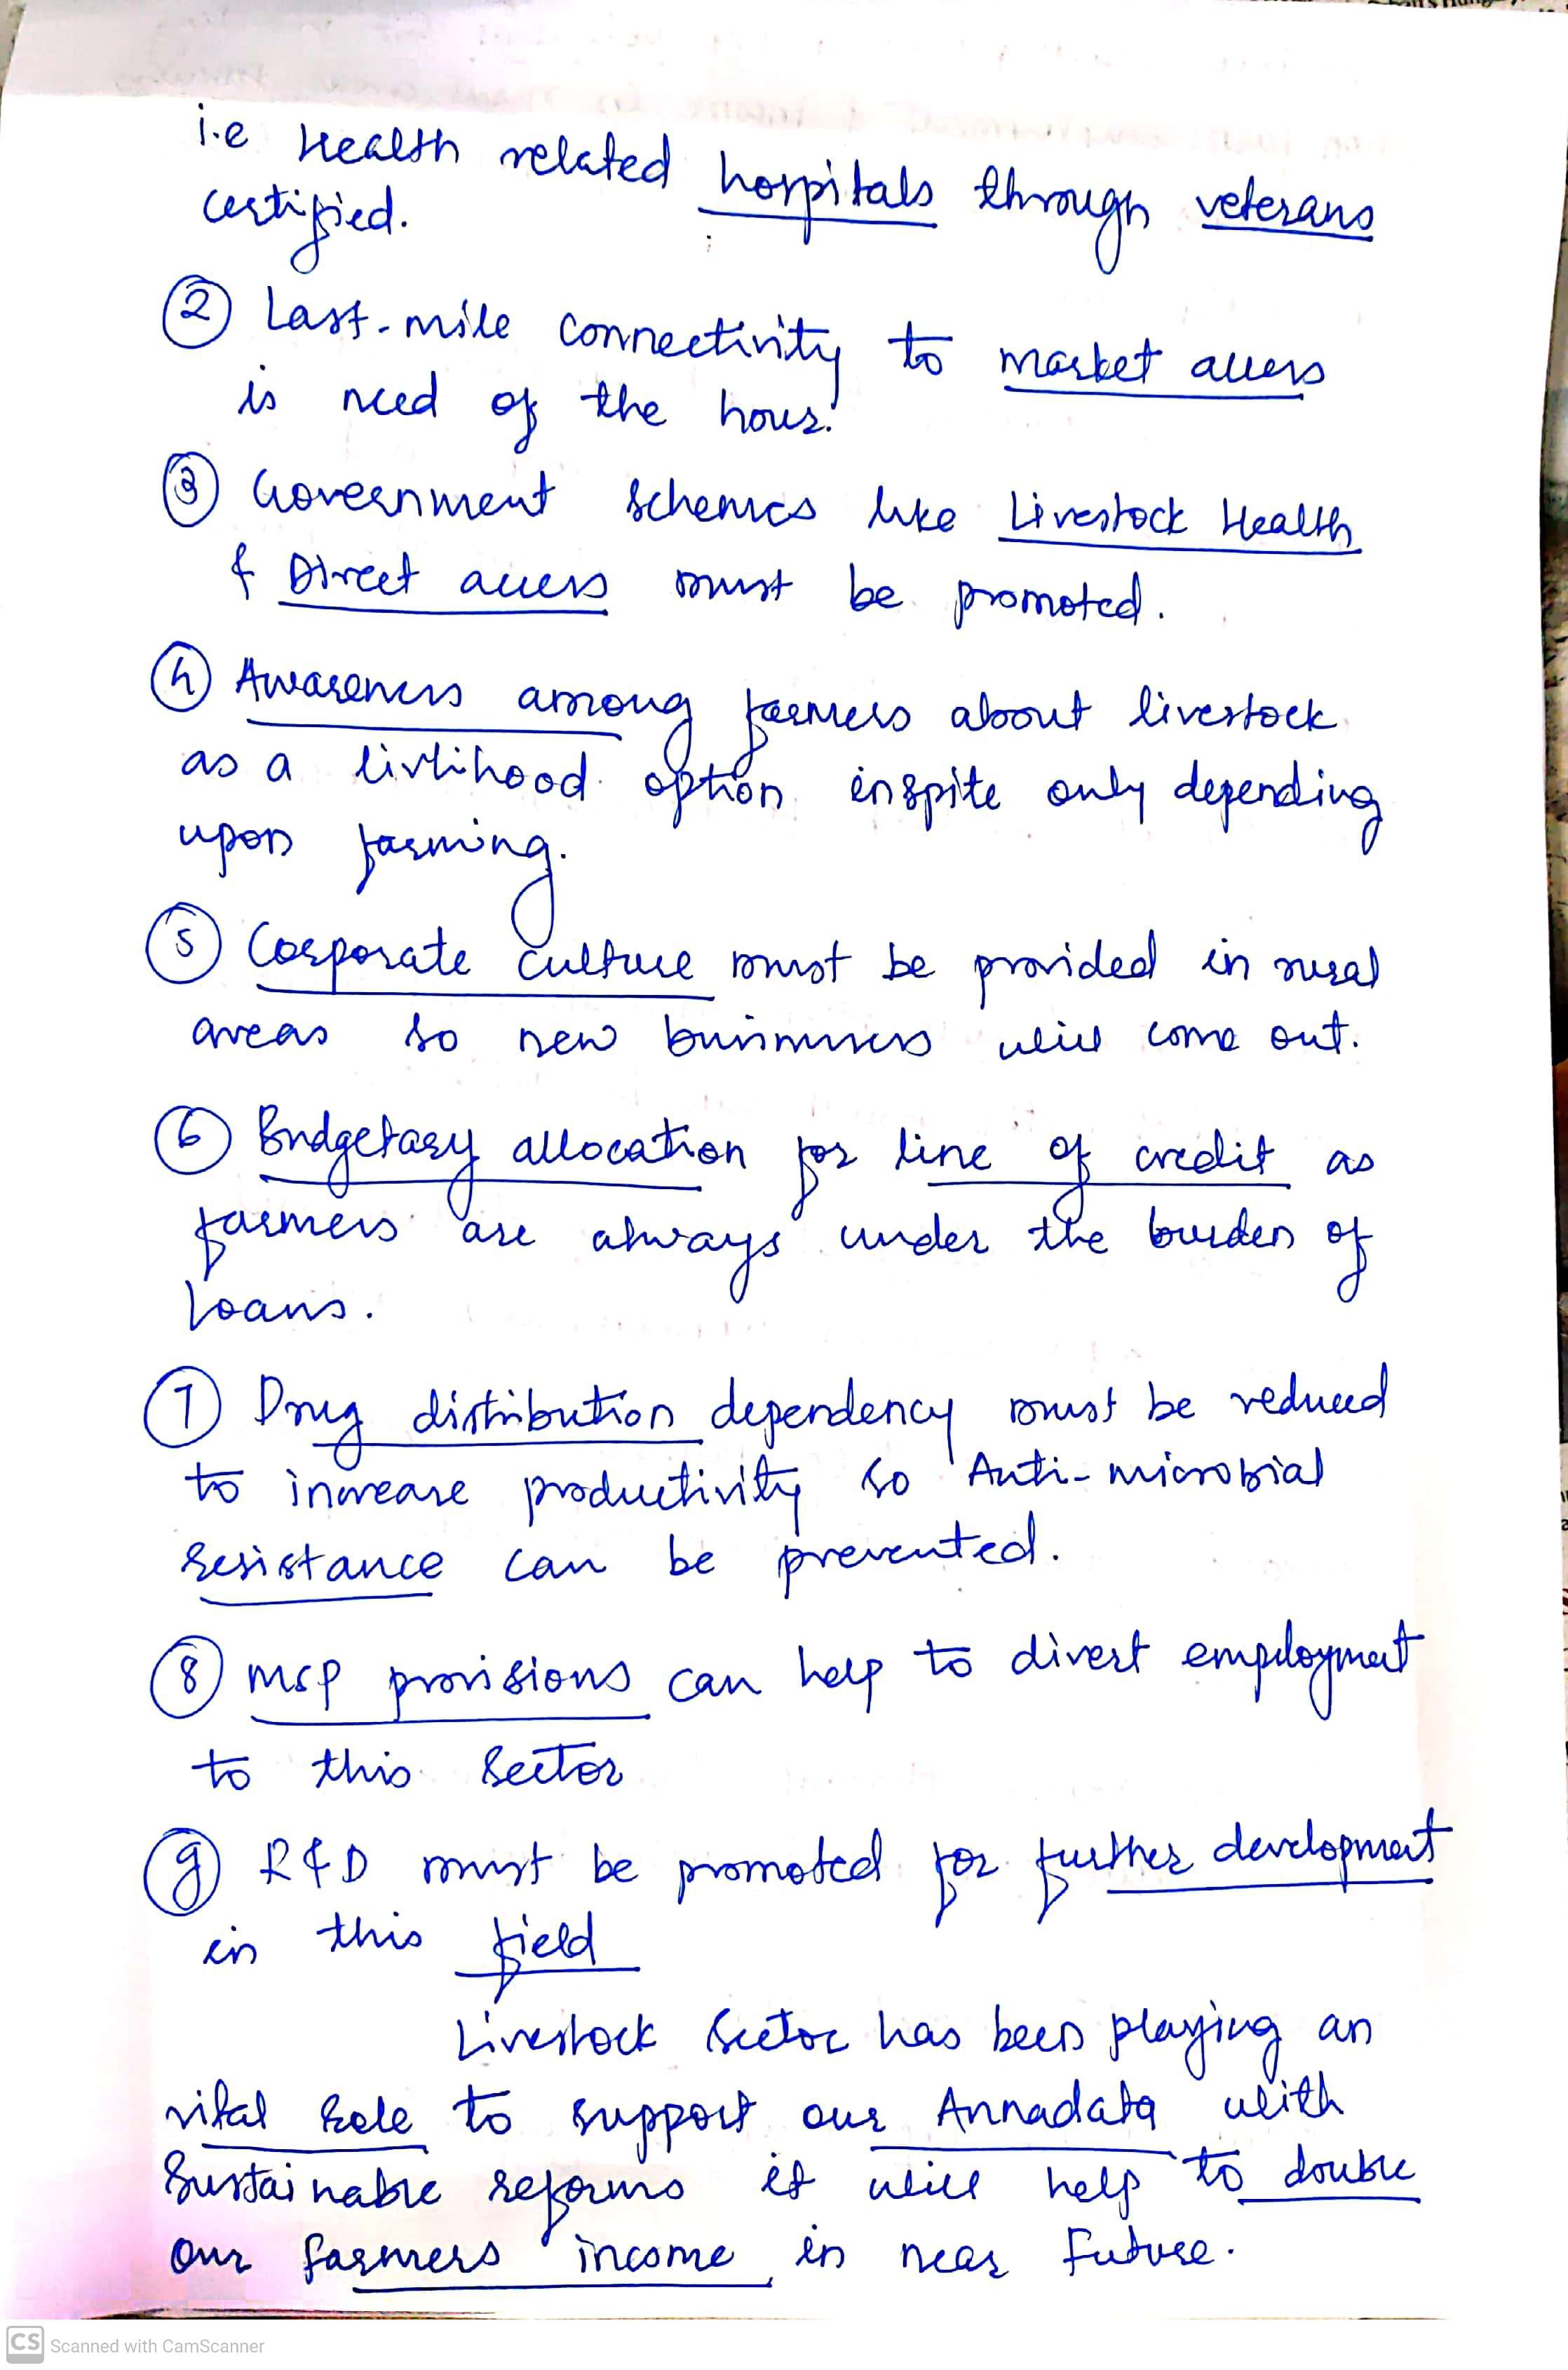 i.e Health related hospitals through veterans
certified.
② Last-mile connectivity to market access
is need of the hour.
③ Government schemes like Livestock Health
& Direct access must be promoted.
④ Awareness among farmers about livestock
as a livlihood option inspite only depending
upon farming.
⑤ Corporate culture must be provided in rural
areas so new businesses will come out.
⑥ Budgetary allocation for line of credit as
farmers are always under the burden of
loans.
⑦ Drug distribution dependency must be reduced
to increase productivity so Anti-microbial
resistance can be prevented.
⑧ MSP provisions can help to divert employment
to this sector
⑨ R&D must be promoted for further development
in this field
Livestock sector has been playing an
vital role to support our Annadata with
Sustainable reforms it will help to double
our farmers income in near future.
CS Scanned with CamScanner